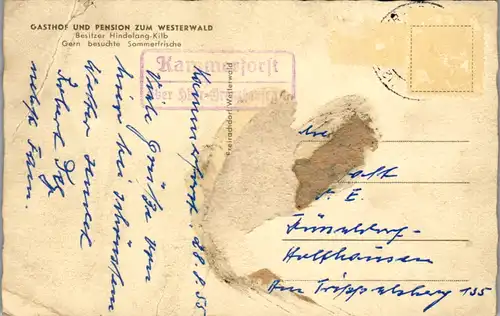 GASTHOF UND PENSION ZUM WESTERWALD
Besitzer Hindelang-Kilb
Gern besuchte Sommerfrische
Kammerforst
über
Freirachdorf/Westerwald
Kammerforst, 28.8.55
Viele Grüße von
hier bei schönstem
Wetter sendet
Robert
nebst Fam.
Düsseldorf-
Holthausen
Am Trippelsberg 135